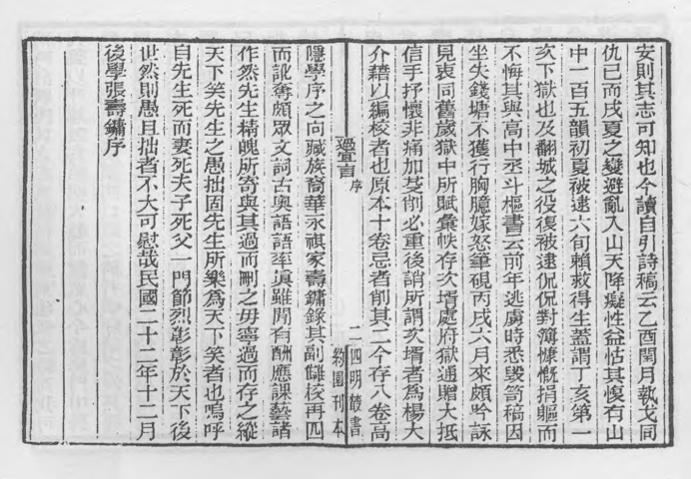 安則其志可知也今讀自引詩稿云乙酉閏月執戈同
仇已而戌夏之變避亂入山天降癡性益怙其悛有山
中一百五韻初夏被逮六旬賴救得生蓋謂丁亥第一
次下獄也及翻城之役復被逮侃侃對簿慷慨捐軀而
不悔其與高中丞斗樞書云前年逃虜時悉毀笥稿因
坐失錢塘不獲行胸臆嫁怒筆硯丙戌六月來頗吟詠
見衷同舊歲獄中所賦彙帙存次壻處府獄通贈大抵
信手抒懷非痛加芟削必重後誚所謂次壻者為楊大
介藉以編校者也原本十卷忌者削其二今存八卷高
過宜言
序
二
四明叢書
約園刊本
隱學序之向臧族裔華永祺家壽鏞錄其副讎校再四
而訛奪頗眾文詞古奧語語率真雖閒有酬應課藝諸
作然先生精魄所寄與其過而刪之毋寧過而存之縱
天下笑先生之愚拙固先生所樂為天下笑者也嗚呼
自先生死而妻死夫子死父一門節烈彰彰於天下後
世然則愚且拙者不大可慰哉民國二十二年十二月
後學張壽鏞序